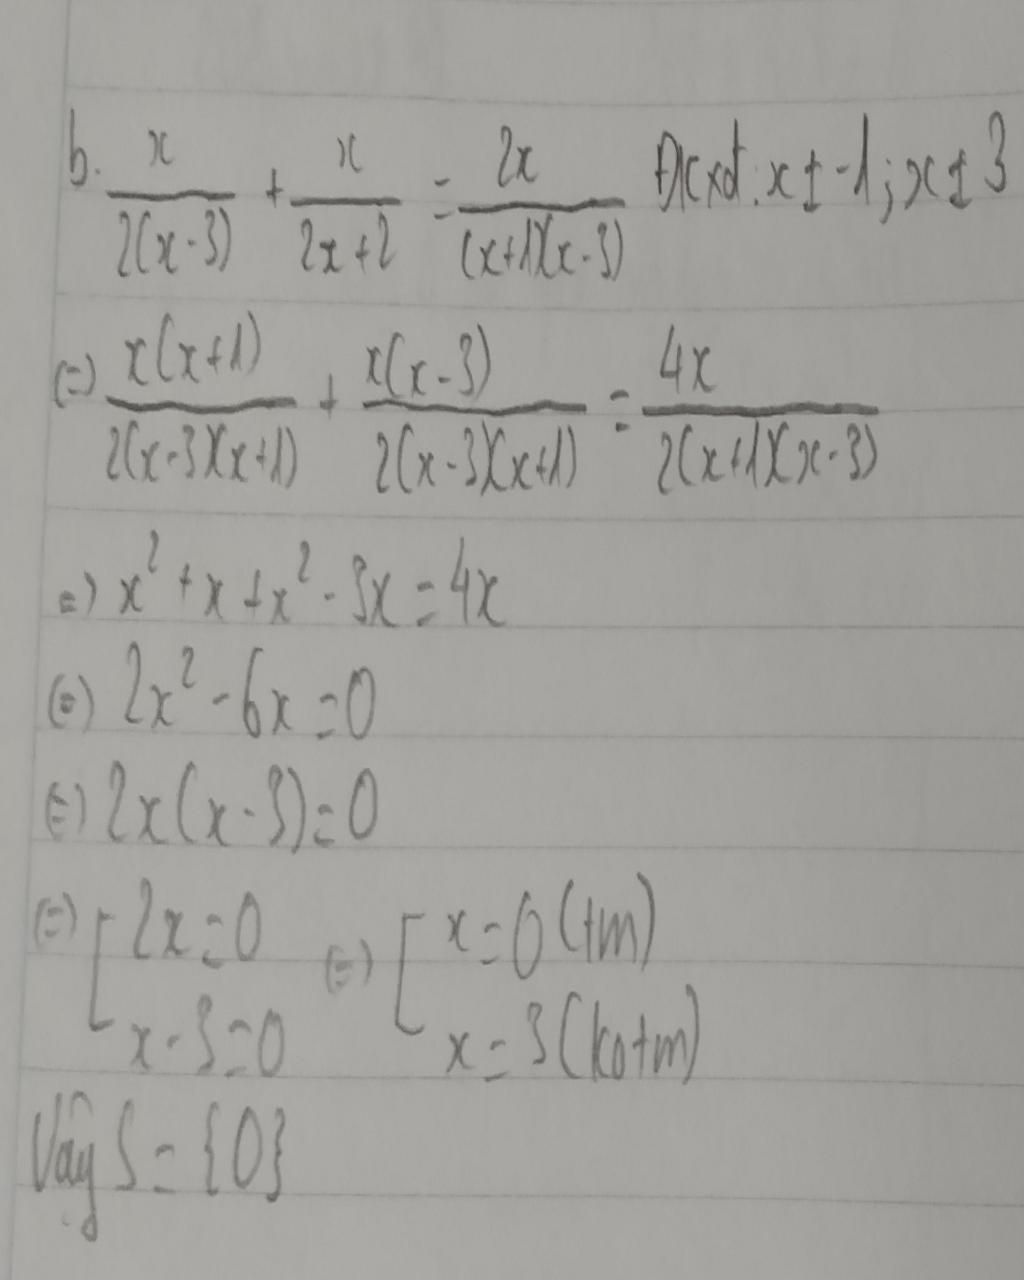 b. x/(2(x-3)) + x/(2x+2) = 2x/((x+1)(x-3)) Đkxđ: x ≠ -1; x ≠ 3
(=) x(x+1)/(2(x-3)(x+1)) + x(x-3)/(2(x-3)(x+1)) = 4x/(2(x+1)(x-3))
=) x² + x + x² - 3x = 4x
(=) 2x² - 6x = 0
(=) 2x(x-3) = 0
(=) [ 2x = 0 (=) [ x = 0 (tm)
x - 3 = 0 x = 3 (kotm)
Vậy S = {0}